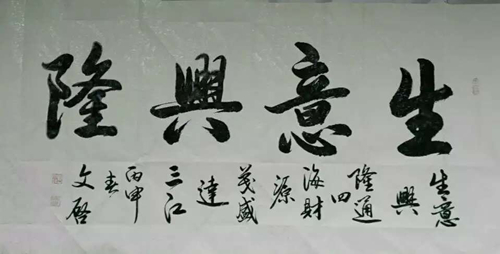 生意興隆
生意
興
隆通
四
海財
源
茂盛
達
三江
丙申
春
文啓